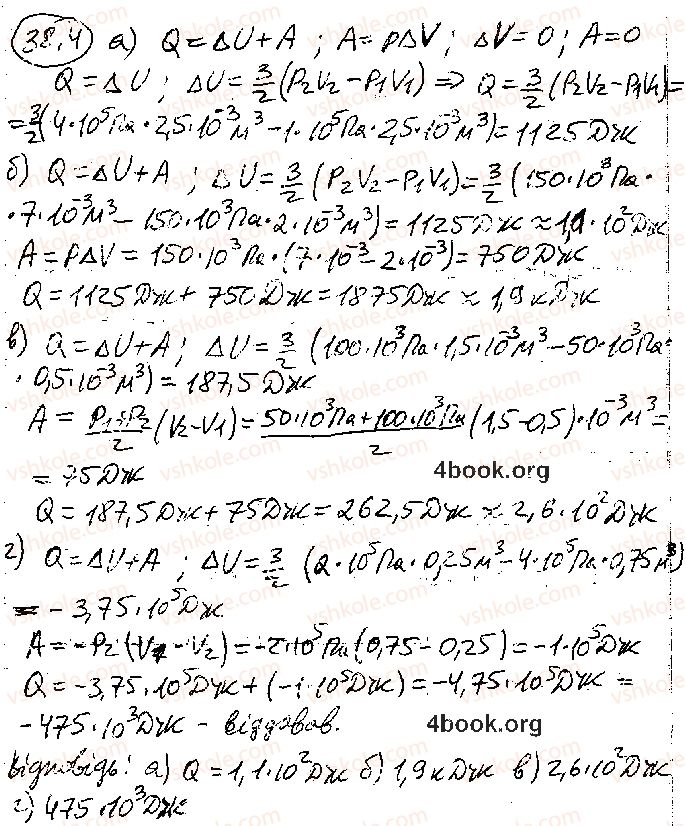 38.4 а) Q = ΔU + A ; A = pΔV ; ΔV = 0 ; A = 0
Q = ΔU ; ΔU = 3/2 (P2V2 − P1V1) ⇒ Q = 3/2 (P2V2 − P1V1) =
= 3/2 (4·10⁵Па · 2,5·10⁻³м³ − 1·10⁵Па · 2,5·10⁻³м³) = 1125 Дж
б) Q = ΔU + A ; ΔU = 3/2 (P2V2 − P1V1) = 3/2 (150·10³Па ·
· 7·10⁻³м³ − 150·10³Па · 2·10⁻³м³) = 1125 Дж ≈ 1,1·10² Дж
A = PΔV = 150·10³Па · (7·10⁻³ − 2·10⁻³) = 750 Дж
Q = 1125 Дж + 750 Дж = 1875 Дж ≈ 1,9 кДж
в) Q = ΔU + A ; ΔU = 3/2 (100·10³Па · 1,5·10⁻³м³ − 50·10³Па ·
· 0,5·10⁻³м³) = 187,5 Дж
A = (P1 + P2)/2 (V2 − V1) = (50·10³Па + 100·10³Па)/2 (1,5 − 0,5)·10⁻³м³ =
= 75 Дж
4book.org
Q = 187,5 Дж + 75 Дж = 262,5 Дж ≈ 2,6·10² Дж
г) Q = ΔU + A ; ΔU = 3/2 (2·10⁵Па · 0,25м³ − 4·10⁵Па · 0,75м³)
= −3,75·10⁵ Дж
A = −P2 (V1 − V2) = −2·10⁵Па (0,75 − 0,25) = −1·10⁵ Дж
Q = −3,75·10⁵ Дж + (−1·10⁵ Дж) = −4,75·10⁵ Дж =
−475·10³ Дж − віддавав.
4book.org
Відповідь: а) Q = 1,1·10² Дж б) 1,9 кДж в) 2,6·10² Дж
г) 475·10³ Дж
vshkole.com